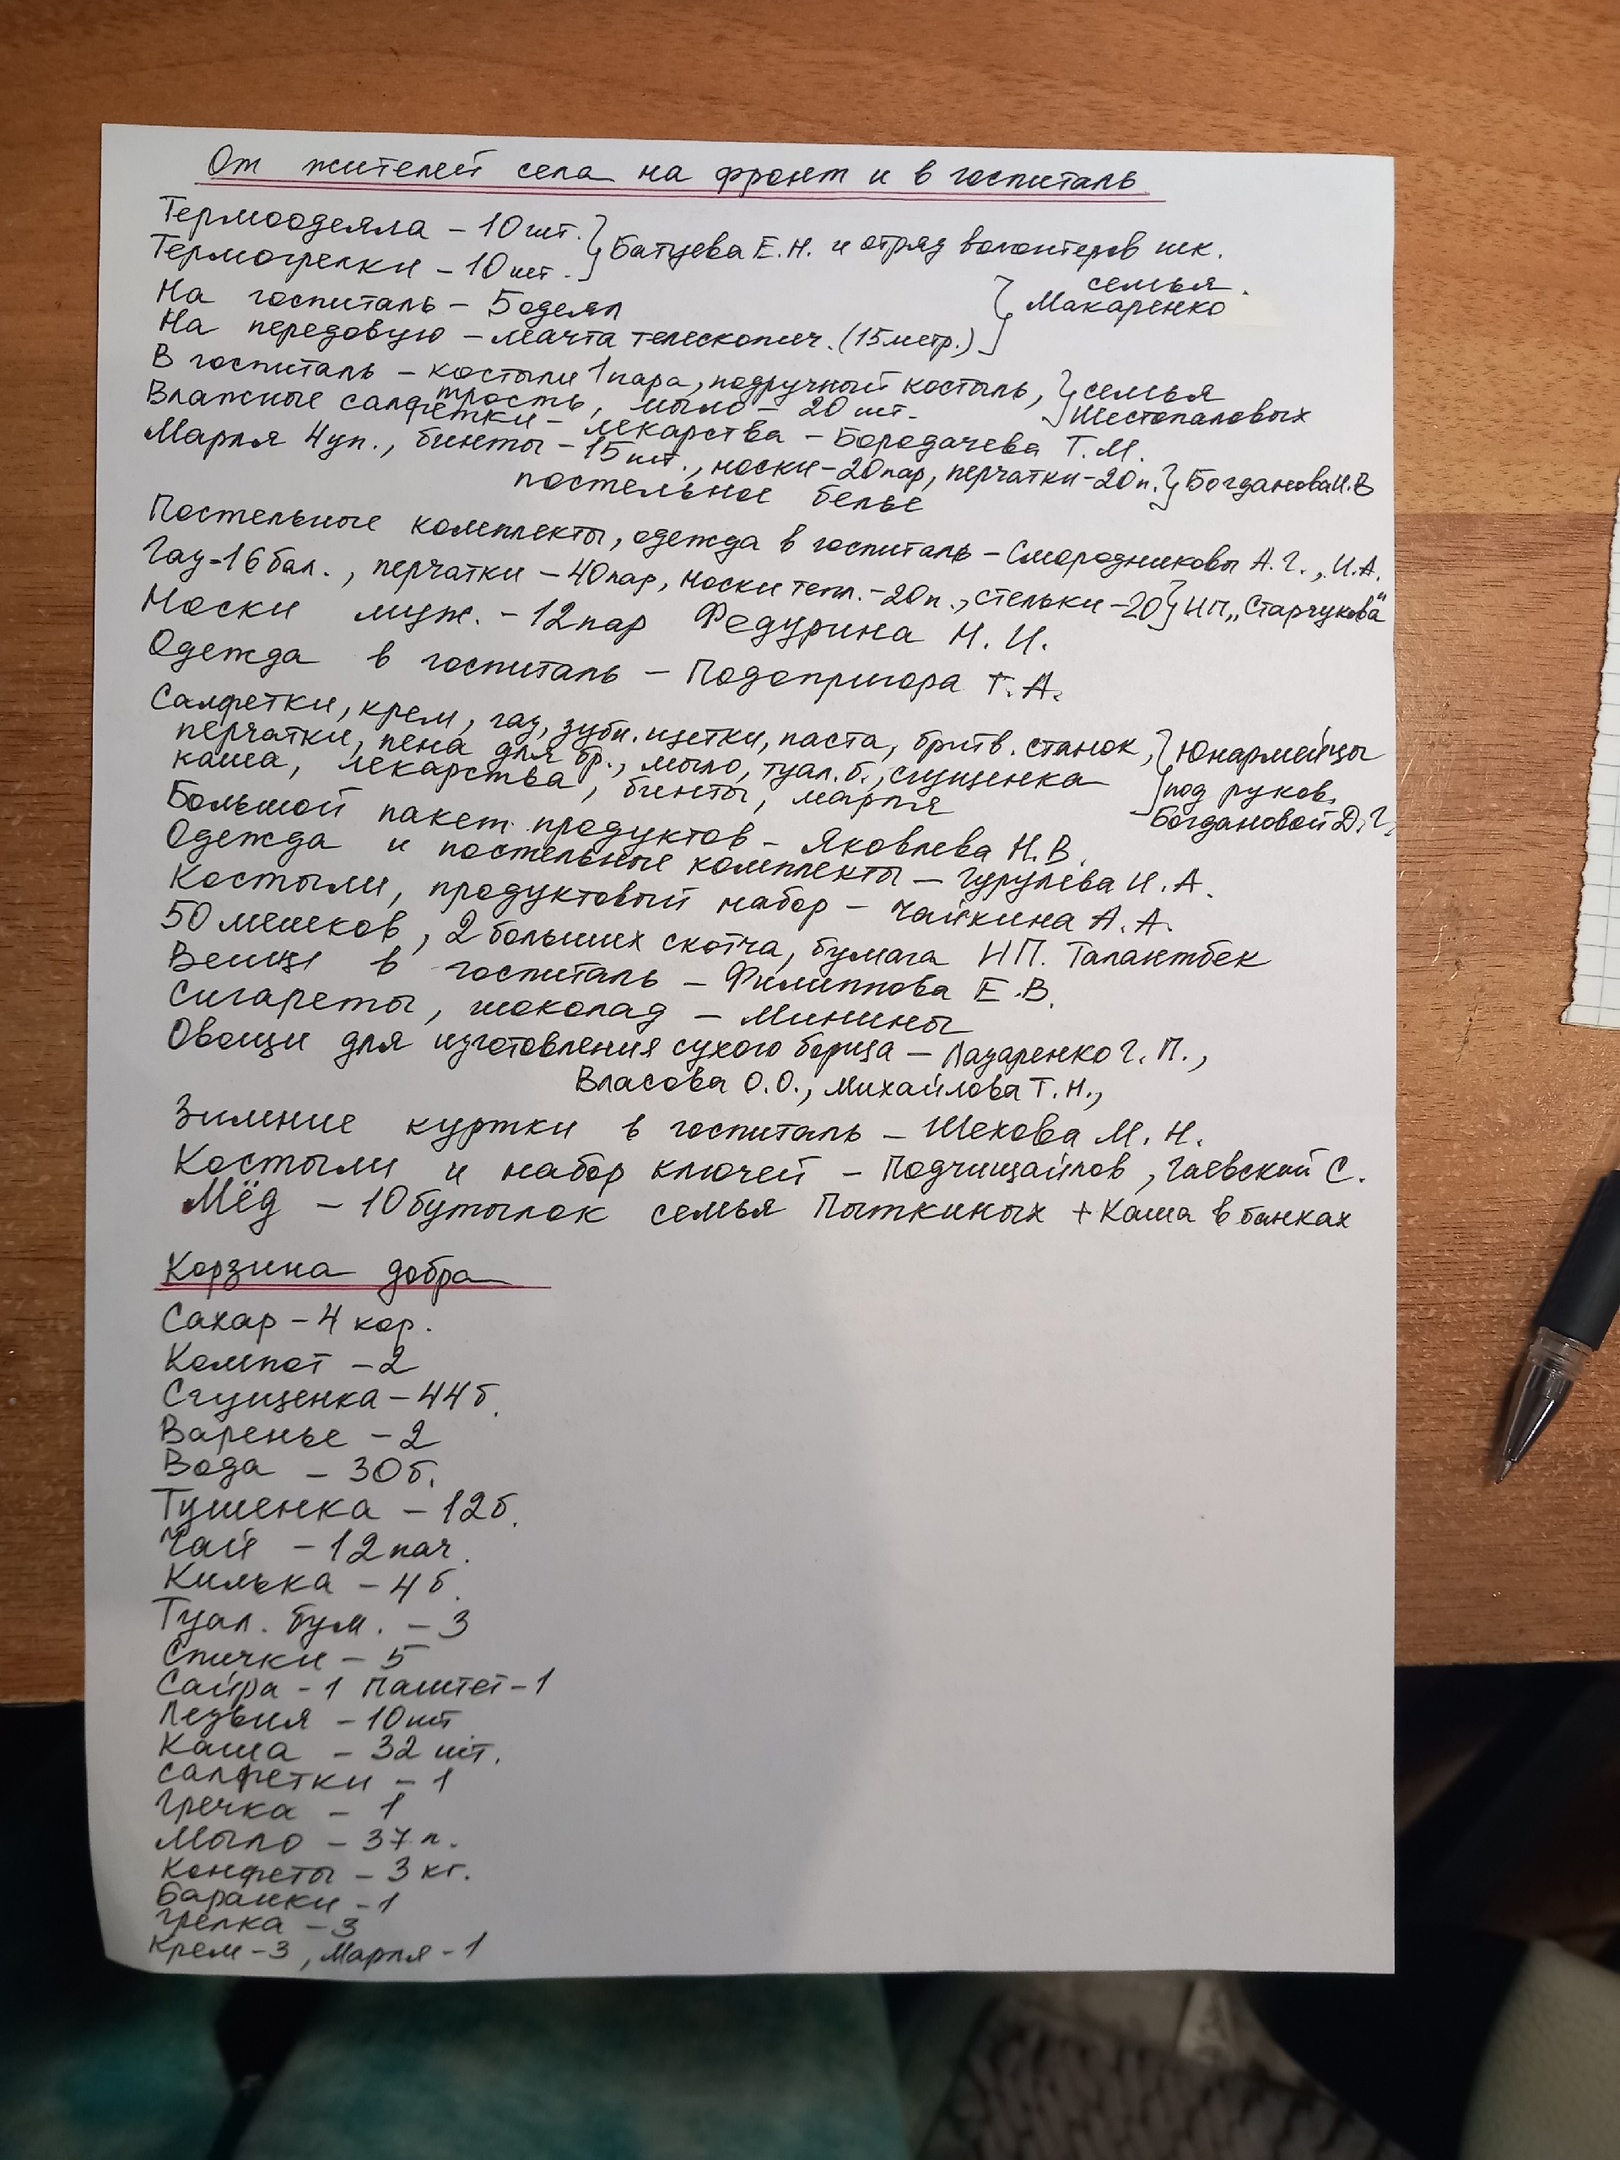 От жителей села на фронт и в госпиталь
Термоодеяла – 10 шт. } Батуева Е.Н. и отряд волонтеров шк.
Термогрелки – 10 шт.
На госпиталь – 5 одеял } семья Макаренко
На передовую – мачта телескопич. (15 метр.)
В госпиталь – костыли 1 пара, подручный костыль, } семья
трость, мыло – 20 шт. Шестопаловых
Влажные салфетки – лекарства – Бородачева Т.М.
Марля 4 уп., бинты – 15 шт., носки – 20 пар, перчатки – 20 п. } Богданова И.В
постельное белье
Постельные комплекты, одежда в госпиталь – Смородниковы А.Г., И.А.
Газ – 16 бал., перчатки – 40 пар, носки тепл. – 20 п., стельки – 20 } ИП „Старчукова"
Носки муж. – 12 пар Федурина Н. И.
Одежда в госпиталь – Подопригора Т. А.
Салфетки, крем, газ, зубн. щетки, паста, бритв. станок, } Юнармейцы
перчатки, пена для бр., мыло, туал. б., сгущенка под руков.
каша, лекарства, бинты, марля Богдановой Д. Г.
Большой пакет продуктов – Яковлева Н. В.
Одежда и постельные комплекты – Гурулева И. А.
Костыли, продуктовый набор – Чайкина А. А.
50 мешков, 2 больших скотча, бумага ИП. Талантбек
Вещи в госпиталь – Филиппова Е.В.
Сигареты, шоколад – Минины
Овощи для изготовления сухого борща – Лазаренко Г. П.,
Власова О.О., Михайлова Т. Н.,
Зимние куртки в госпиталь – Шехова М. Н.
Костыли и набор ключей – Подчищайлов, Гаевский С.
Мёд – 10 бутылок семья Пыткиных + Каша в банках
Корзина добра
Сахар – 4 кор.
Компот – 2
Сгущенка – 44 б.
Варенье – 2
Вода – 30 б.
Тушенка – 12 б.
Чай – 12 пач.
Килька – 4 б.
Туал. бум. – 3
Спички – 5
Сайра – 1 Паштет – 1
Лезвия – 10 шт
Каша – 32 шт.
Салфетки – 1
Гречка – 1
Мыло – 37 п.
Конфеты – 3 кг.
Баранки – 1
Грелка – 3
Крем – 3, Марля – 1